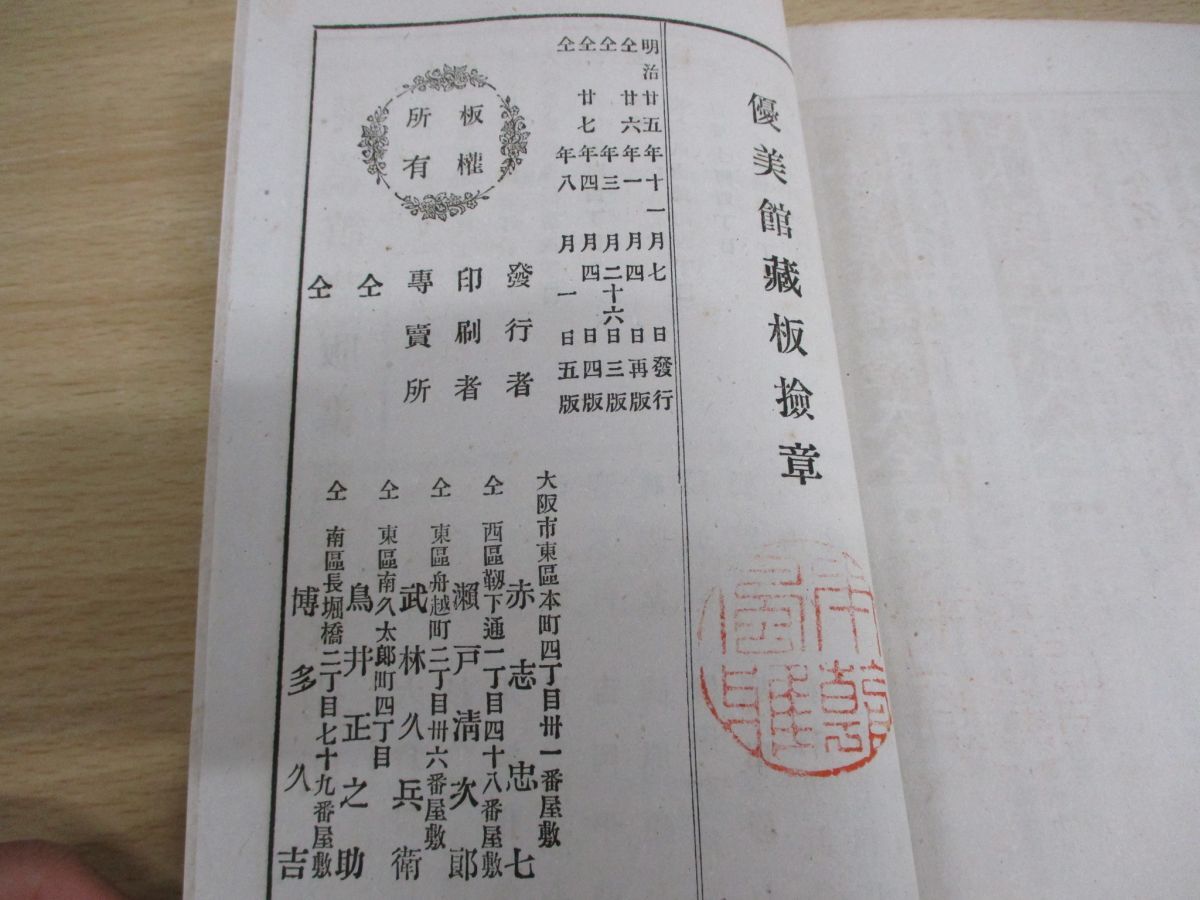 優美館藏板撿章
明治廿五年十一月七日發行
仝廿六年一月四日再版
仝年三月二十六日三版
仝廿七年四月四日四版
仝年八月一日五版
板權
所有
發行者
大阪市東區本町四丁目卅一番屋敷
赤志忠七
印刷者
仝西區靱下通一丁目四十八番屋敷
瀨戸淸次郎
專賣所
仝東區舟越町二丁目卅六番屋敷
武林久兵衛
仝
仝東區南久太郎町四丁目
鳥井正之助
仝
仝南區長堀橋二丁目七十九番屋敷
博多久吉